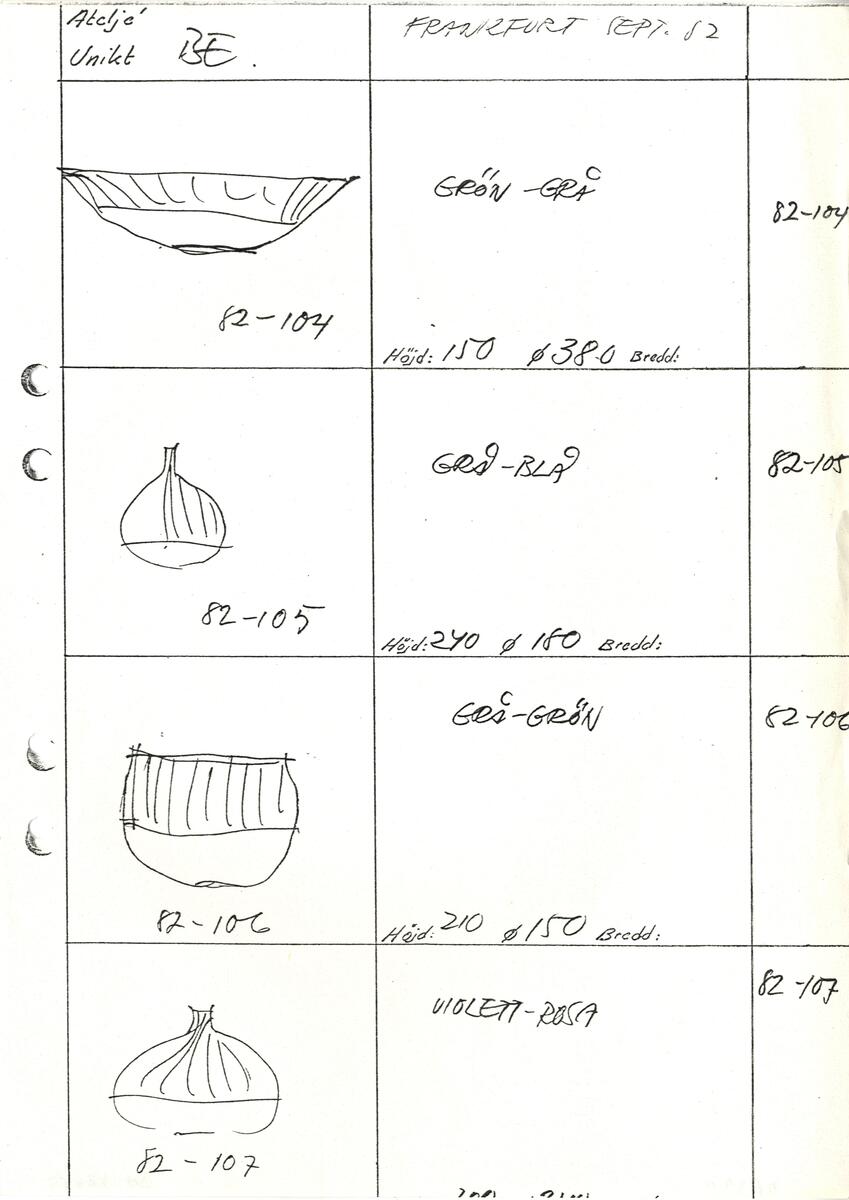 Ateljé
Unikt BE.
FRANKFURT SEPT. 82
GRÖN-GRÅ
82-104
82-104
Höjd: 150 ø 380 Bredd:
GRÅ-BLÅ
82-105
82-105
Höjd: 240 ø 180 Bredd:
GRÅ-GRÖN
82-106
82-106
Höjd: 210 ø 150 Bredd:
VIOLETT-ROSA
82-107
82-107